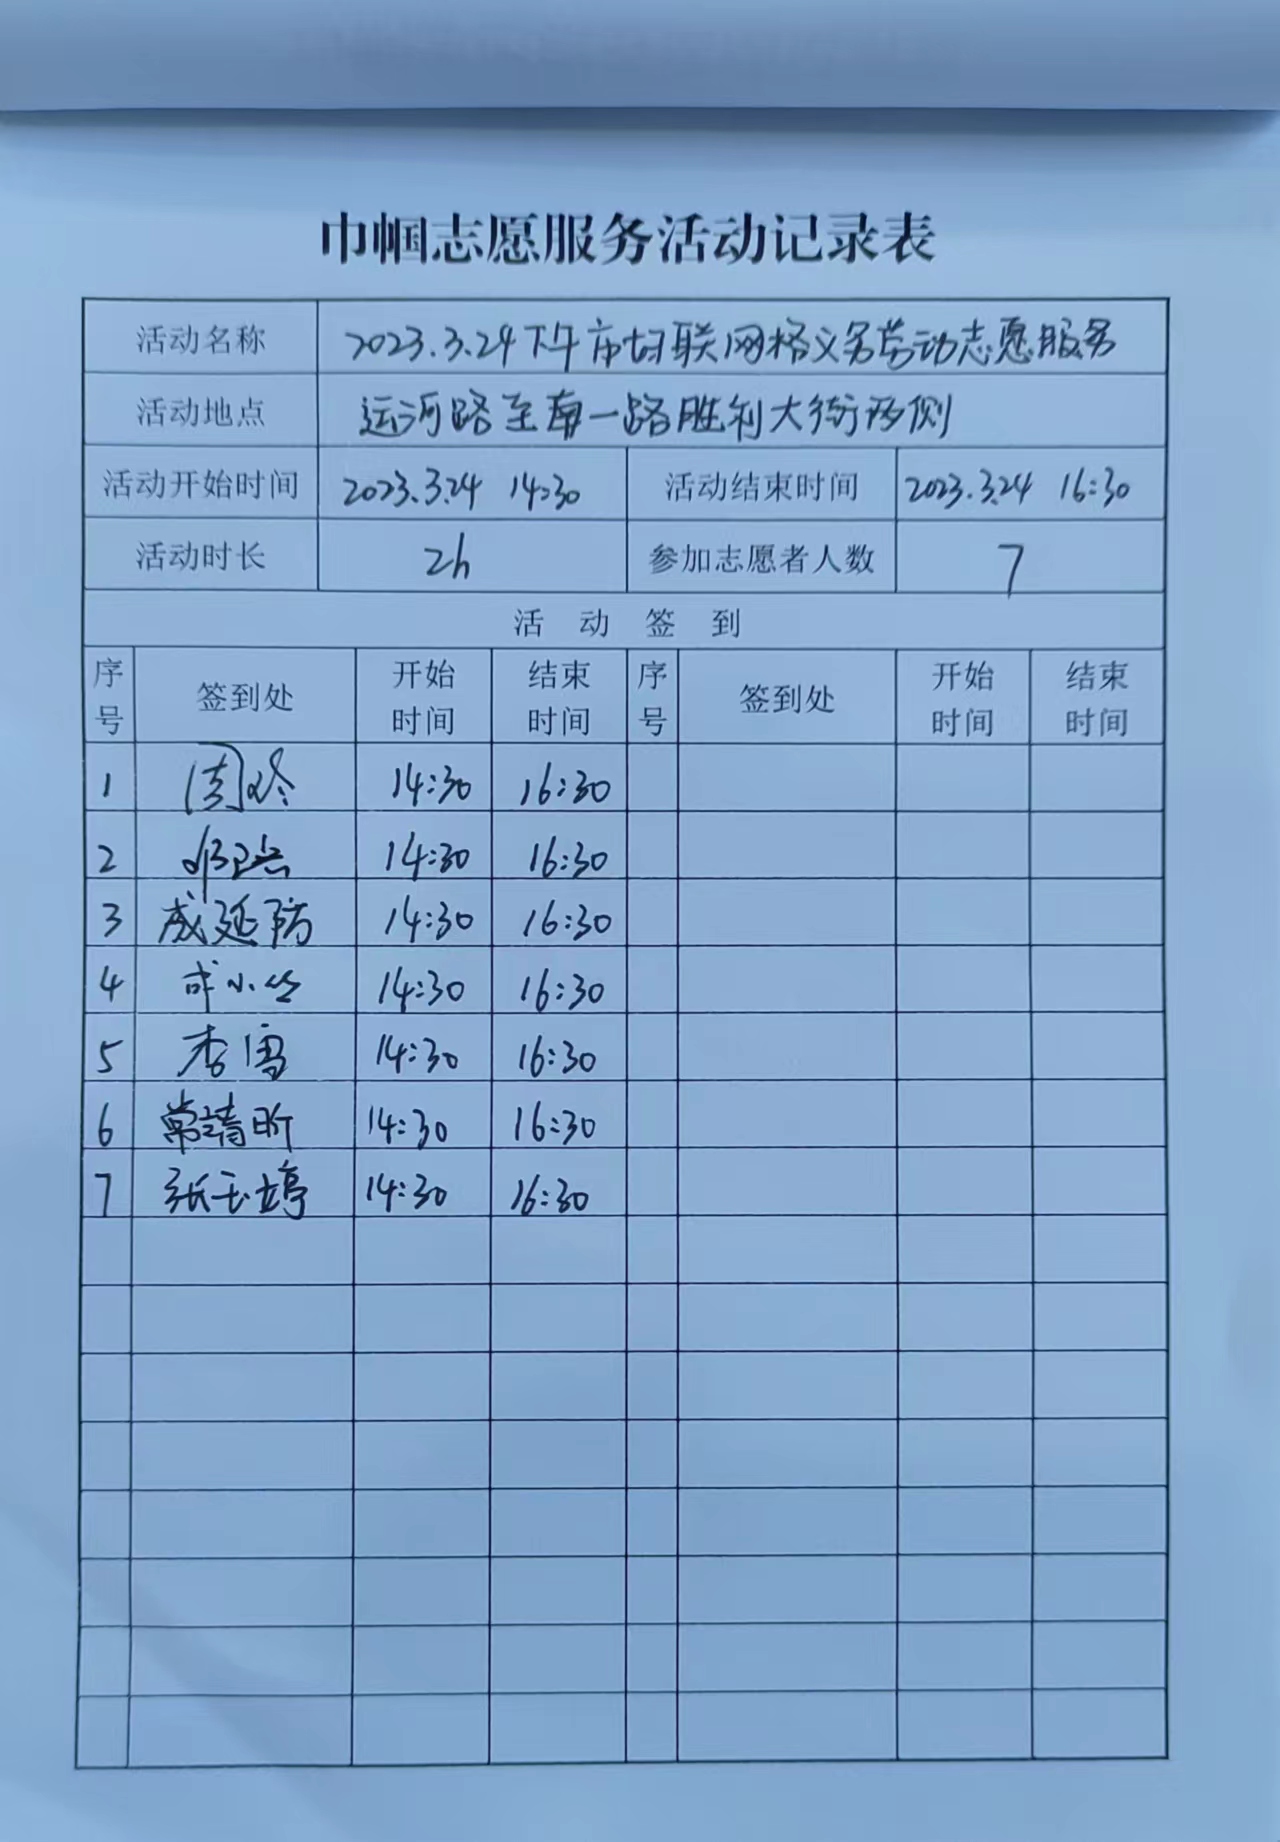 巾帼志愿服务活动记录表
活动名称 2023.3.24下午市妇联网格义务劳动志愿服务
活动地点 运河路至南一路胜利大街两侧
活动开始时间 2023.3.24 14:30 活动结束时间 2023.3.24 16:30
活动时长 2h 参加志愿者人数 7
活动签到
序号 签到处 开始时间 结束时间 序号 签到处 开始时间 结束时间
1 14:30 16:30
2 14:30 16:30
3 成延防 14:30 16:30
4 14:30 16:30
5 李雪 14:30 16:30
6 常靖昕 14:30 16:30
7 张玉婷 14:30 16:30